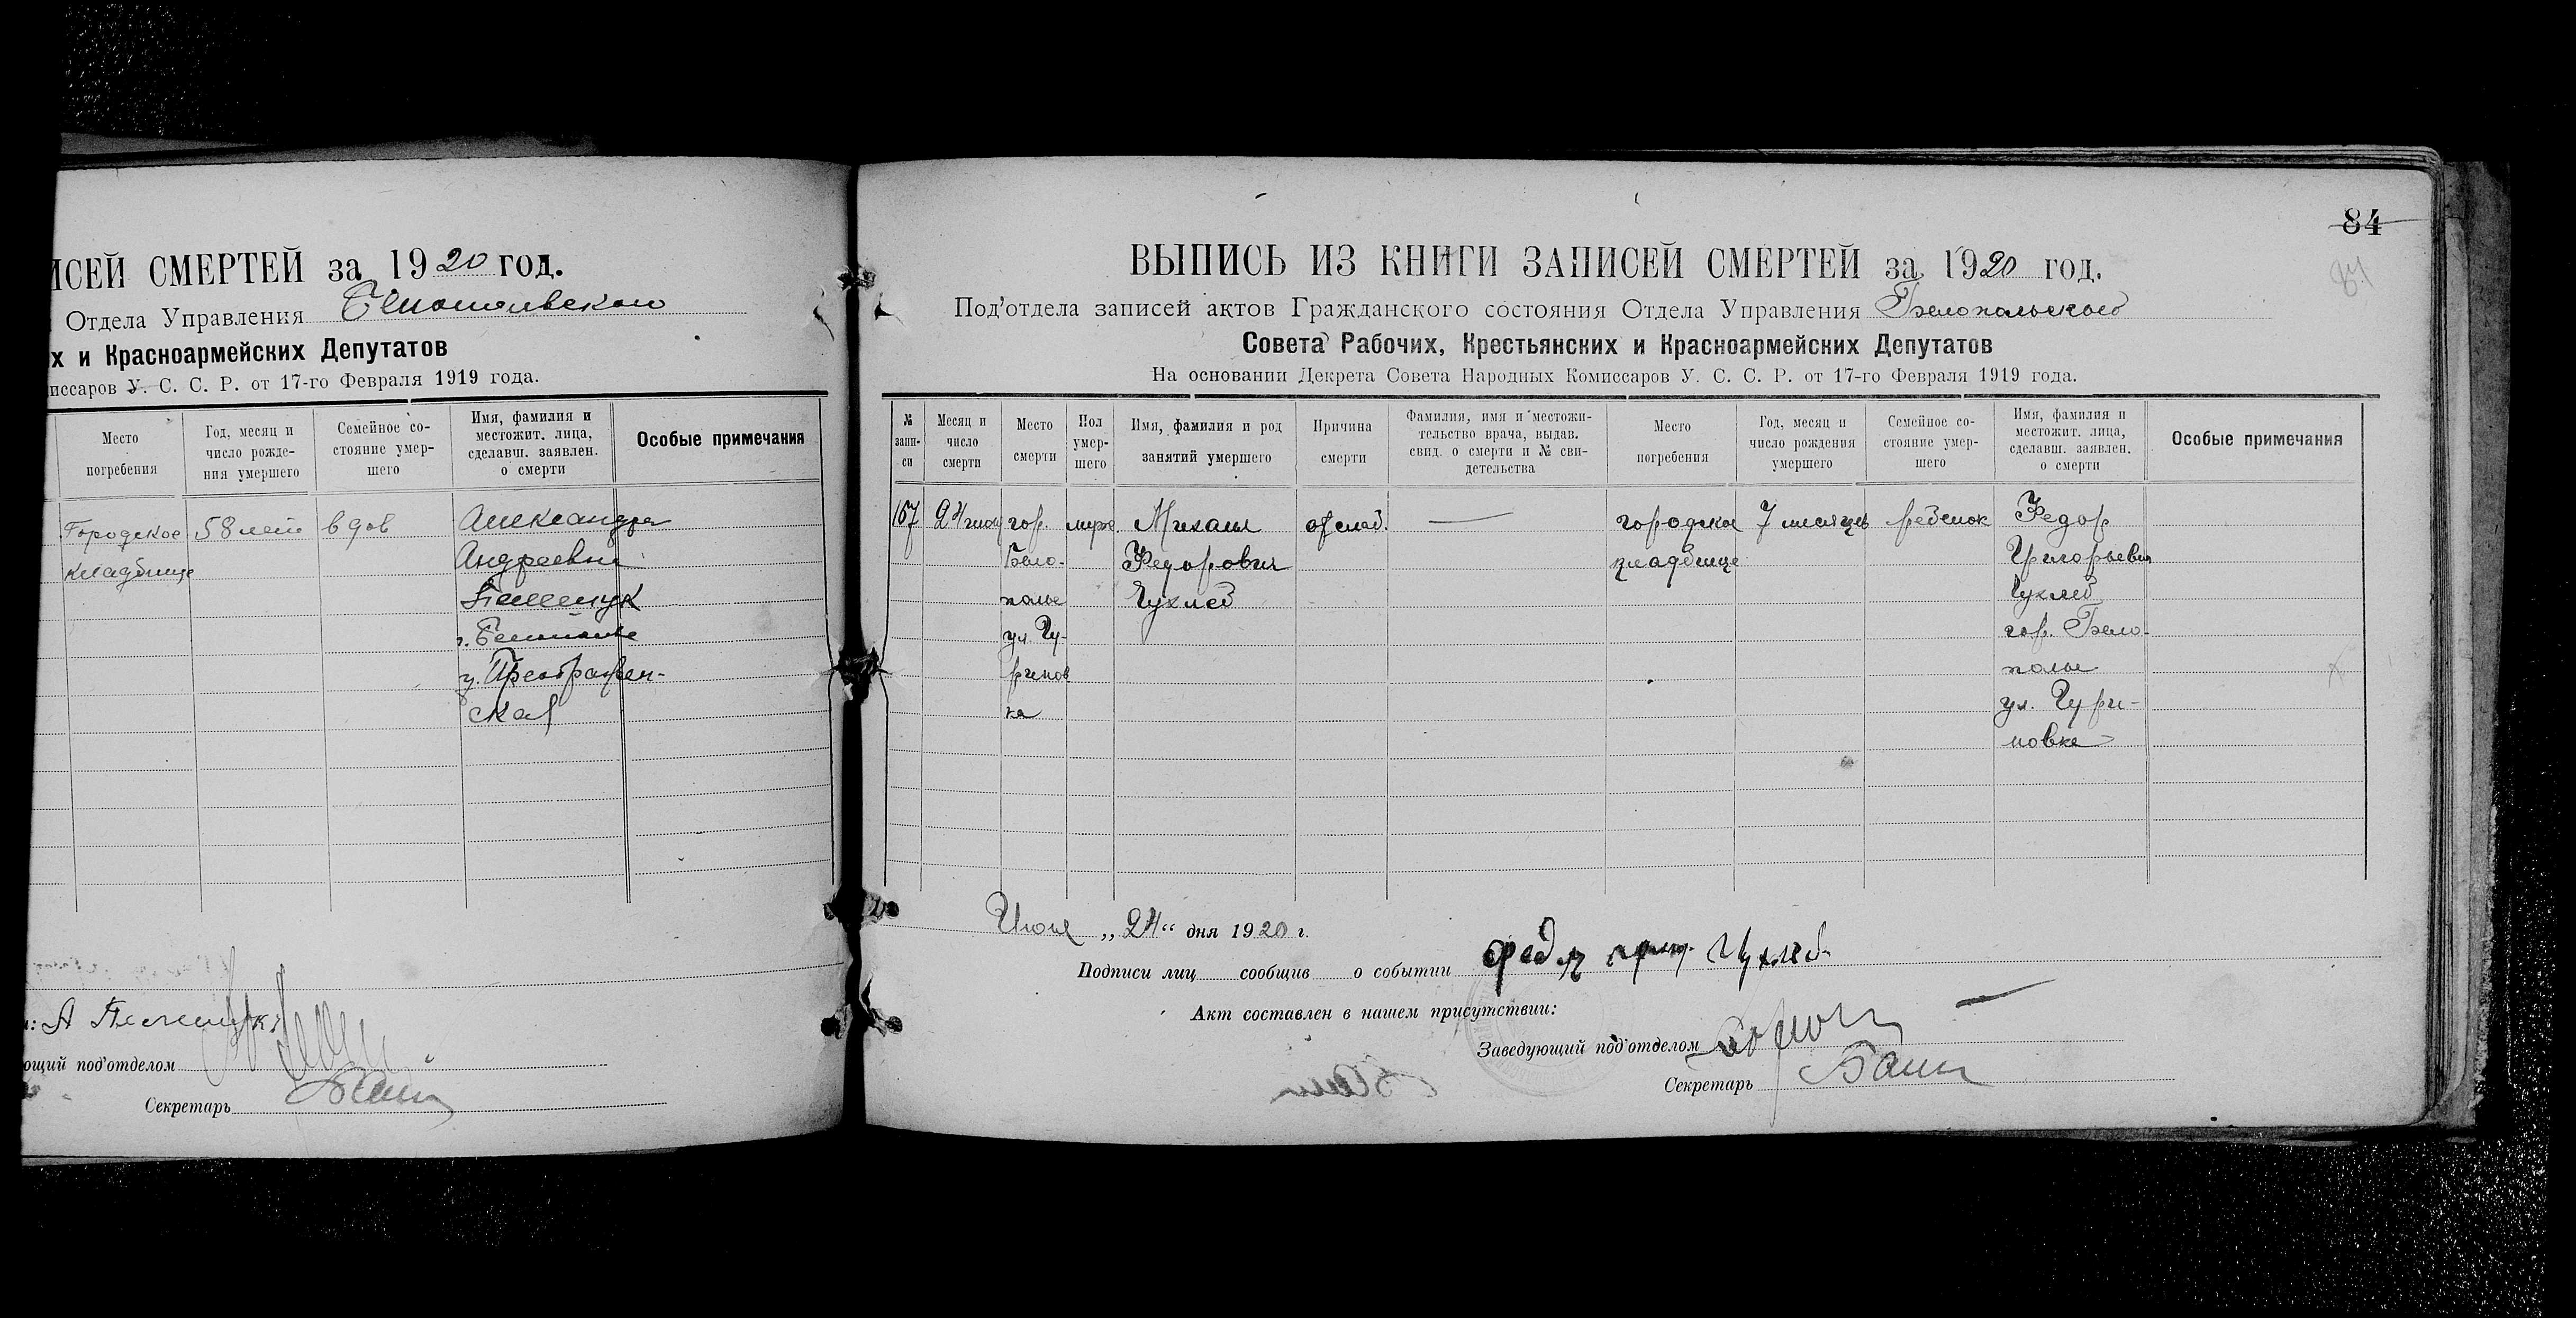 ИСЕЙ СМЕРТЕЙ за 1920 год.
Отдела Управления
х и Красноармейских Депутатов
иссаров У. С. С. Р. от 17-го Февраля 1919 года.
Место погребения
Год, месяц и число рождения умершего
Семейное состояние умершего
Имя, фамилия и местожит. лица, сделавш. заявлен. о смерти
Особые примечания
Городское
кладбище
58 лет
вдов
Александра
Андреевна
г. Белополье
у. Преображен-
ская
ющий под'отделом
Секретарь
84
84
ВЫПИСЬ ИЗ КНИГИ ЗАПИСЕЙ СМЕРТЕЙ за 1920 год.
Под'отдела записей актов Гражданского состояния Отдела Управления Белопольского
Совета Рабочих, Крестьянских и Красноармейских Депутатов
На основании Декрета Совета Народных Комиссаров У. С. С. Р. от 17-го Февраля 1919 года.
№ запи-
си
Месяц и
число
смерти
Место
смерти
Пол
умер-
шего
Имя, фамилия и род
занятий умершего
Причина
смерти
Фамилия, имя и местожи-
тельство врача, выдав.
свид. о смерти и № сви-
детельства
Место
погребения
Год, месяц и
число рождения
умершего
Семейное со-
стояние умер-
шего
Имя, фамилия и
местожит. лица,
сделавш. заявлен.
о смерти
Особые примечания
167
24 июня
гор.
Бело-
полье
ул. Чу-
ринов
ка
муж.
Михаил
Федорович
Чухлеб
от слаб.
городское
кладбище
7 месяцев
ребенок
Федор
Григорьевич
Чухлеб
гор. Бело-
полье
ул. Чури-
новка
Июня „24“ дня 1920 г.
Подписи лиц сообщив о событии Федор Чухлеб
Акт составлен в нашем присутствии:
Заведующий под'отделом
Секретарь